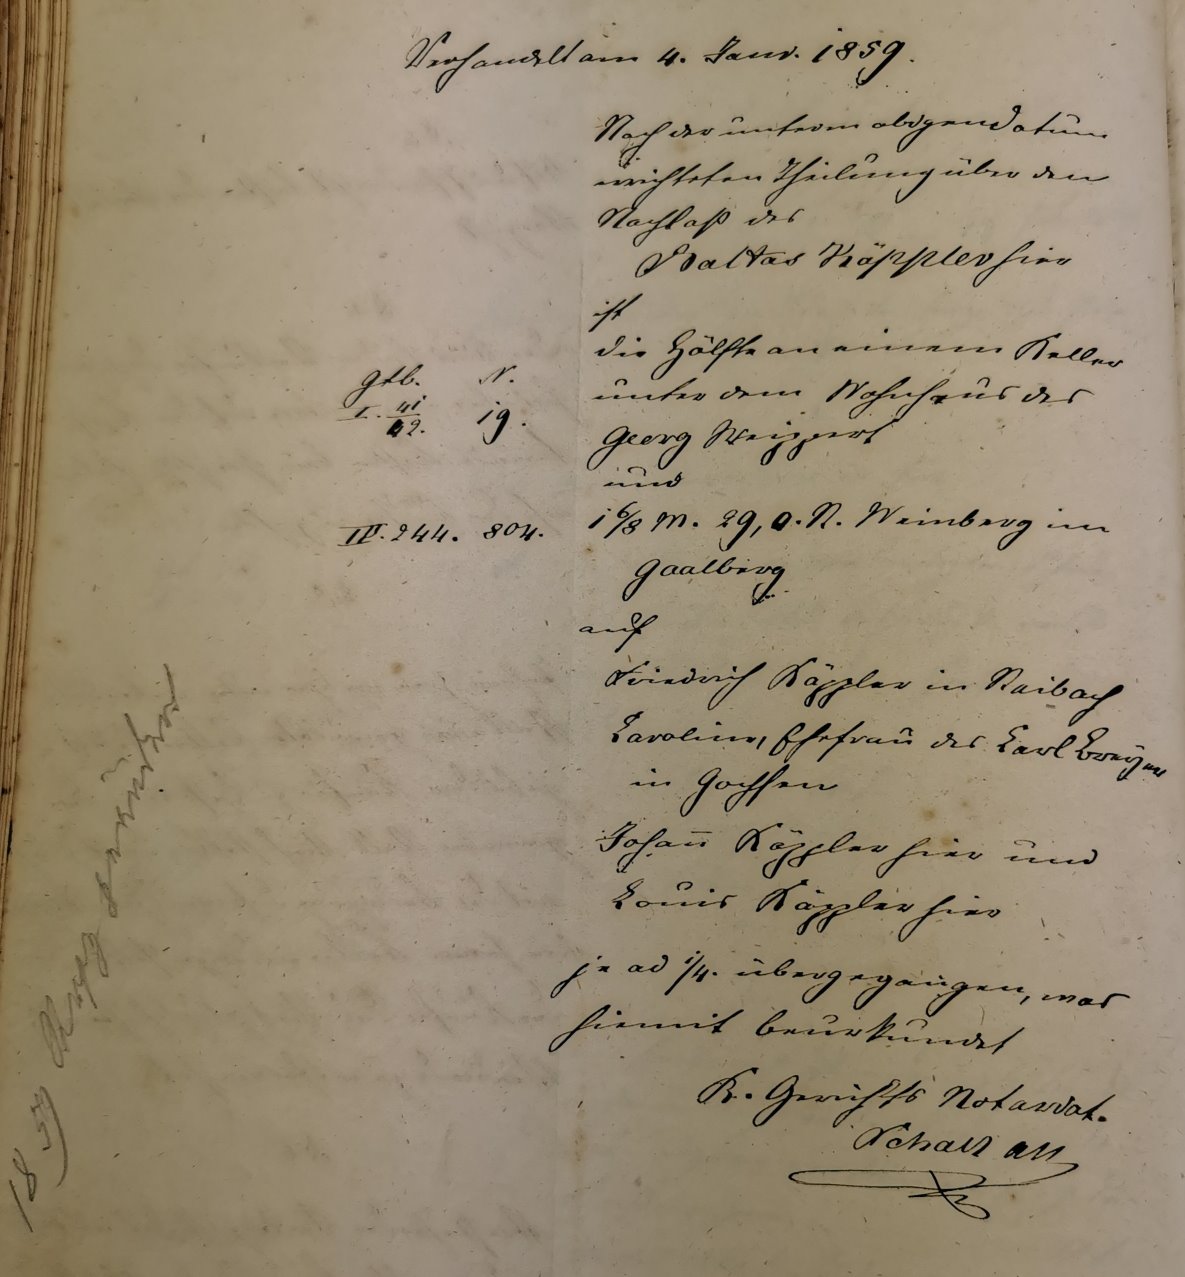 Verhandelt am 4. Janr. 1859.
Nach der unterm obigen Datum
errichteten Theilung über den
Nachlaß des
Baltas Käppler hier
ist
die Hälfte an einem Keller
Gtb. N.
unter dem Wohnhaus des
I. 41/42. 19.
Georg Weippert
und
III. 244. 804. 1 6/8 M. 29,0. R. Weinberg im
Gaalberg
auf
Friedrich Käppler in Raibach
Caroline, Ehefrau des Carl Breyer
in Gochsen
Johann Käppler hier und
Louis Käppler hier
je ad 1/4. übergegangen, was
hiemit beurkundet
K. Gerichts Notariat.
18 59